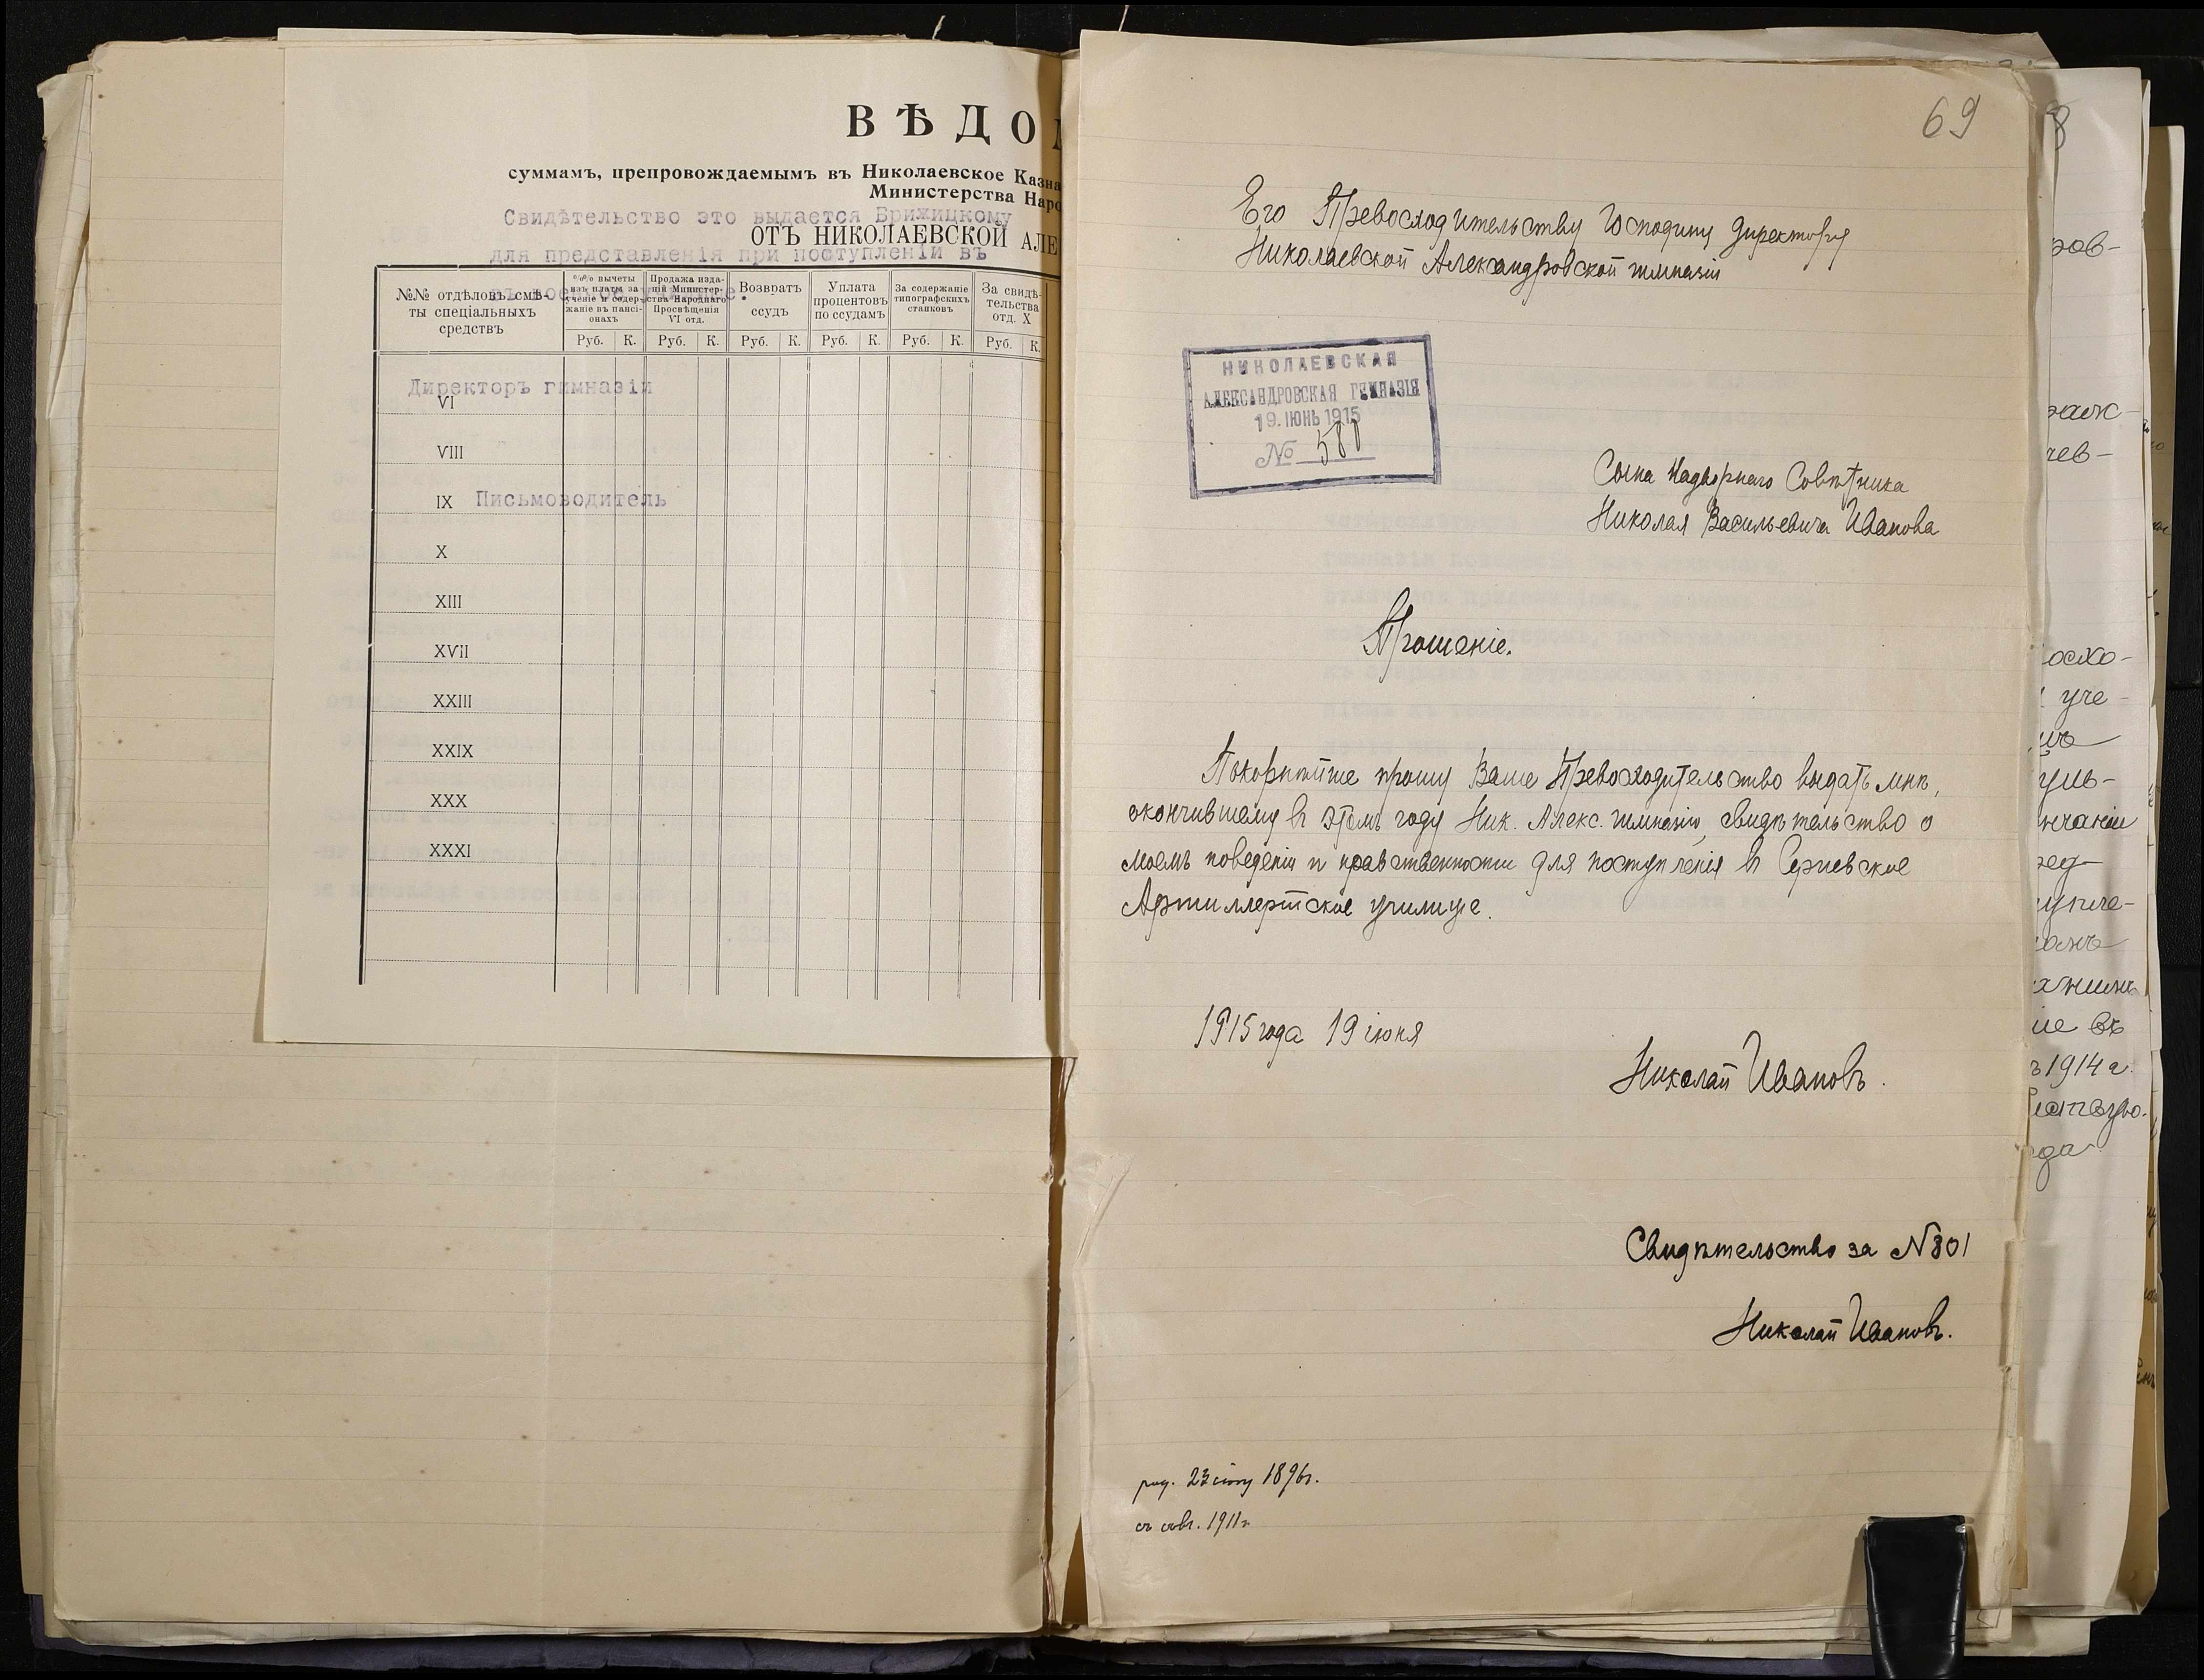 ВѢДО
суммамъ, препровождаемымъ въ Николаевское Казна
Министерства Наро
Свидѣтельство это выдается Брижицкому
ОТЪ НИКОЛАЕВСКОЙ АЛЕ
для представленія при поступленіи въ
№№ отдѣловъ смѣ-
ты спеціальныхъ
средствъ
%% вычеты
изъ платы за
ученіе и содер-
жаніе въ пансі-
онахъ
Продажа изда-
ній Министер-
ства Народнаго
Просвѣщенія
VI отд.
Возвратъ
ссудъ
Уплата
процентовъ
по ссудамъ
За содержаніе
типографскихъ
станковъ
За свидѣ-
тельства
отд. X
Руб. К. Руб. К. Руб. К. Руб. К. Руб. К. Руб. К.
Директоръ гимназіи
VI
VIII
IX
Письмоводитель
X
XIII
XVII
XXIII
XXIX
XXX
XXXI
69
Его Превосходительству Господину Директору
Николаевской Александровской гимназіи
НИКОЛАЕВСКАЯ
АЛЕКСАНДРОВСКАЯ ГИМНАЗІЯ
19. ІЮНЬ 1915
№ 580
Сына Надворнаго Совѣтника
Николая Васильевича Иванова
Прошеніе.
Покорнѣйше прошу Ваше Превосходительство выдать мнѣ,
окончившему въ этомъ году Ник. Алекс. гимназію, свидѣтельство о
моемъ поведеніи и нравственности для поступленія въ Сергіевское
Артиллерійское училище.
1915 года 19 іюня
Николай Ивановъ.
Свидѣтельство за N 801
Николай Ивановъ.
род. 23 1896г.
1911г.
ров-
чев-
осхо-
уче-
уль-
нчаніи
ред-
упле-
іе въ
1914 г.
да